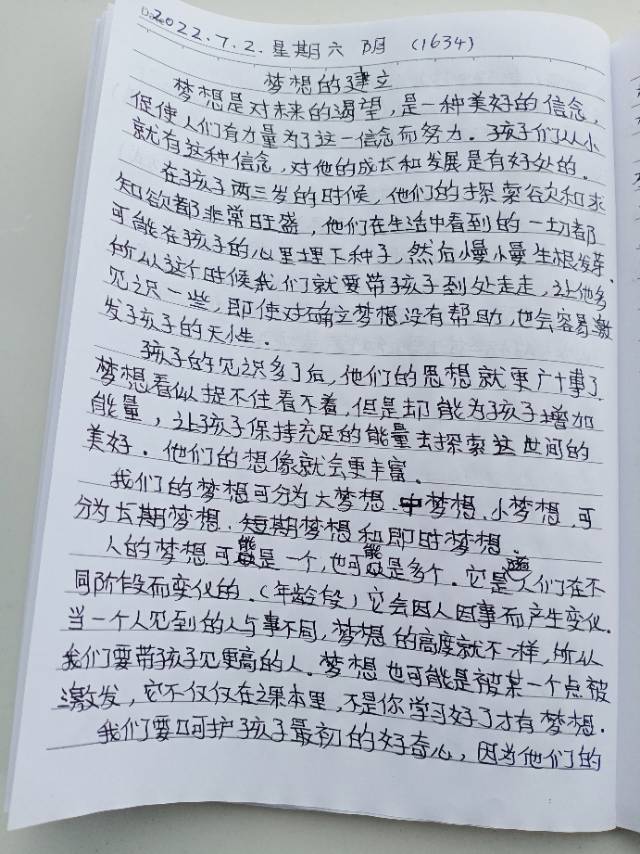 Date 2022.7.2. 星期六 阴 (1634)
梦想的建立
梦想是对未来的渴望，是一种美好的信念，
促使人们有力量为了这一信念而努力。孩子们从小
就有这种信念，对他的成长和发展是有好处的。
在孩子两三岁的时候，他们的探索欲和求
知欲都非常旺盛，他们在生活中看到的一切都
可能在孩子的心里埋下种子，然后慢慢生根发芽，
所以这个时候我们就要带孩子到处走走，让他多
见识一些，即使对确立梦想没有帮助，也会容易激
发孩子的天性。
孩子的见识多了后，他们的思想就更广博了
梦想看似捉不住看不着，但是却能为孩子增加
能量，让孩子保持充足的能量去探索这世间的
美好。他们的想像就会更丰富。
我们的梦想可分为大梦想、中梦想、小梦想，可
分为长期梦想、短期梦想和即时梦想。
人的梦想可能是一个，也可能是多个。它是随人们在不
同阶段而变化的。（年龄段）它会因人因事而产生变化。
当一个人见到的人与事不同，梦想的高度就不一样，所以
我们要带孩子见更高的人。梦想也可能是被某一个点被
激发，它不仅仅在课本里，不是你学习好了才有梦想。
我们要呵护孩子最初的好奇心，因为他们的